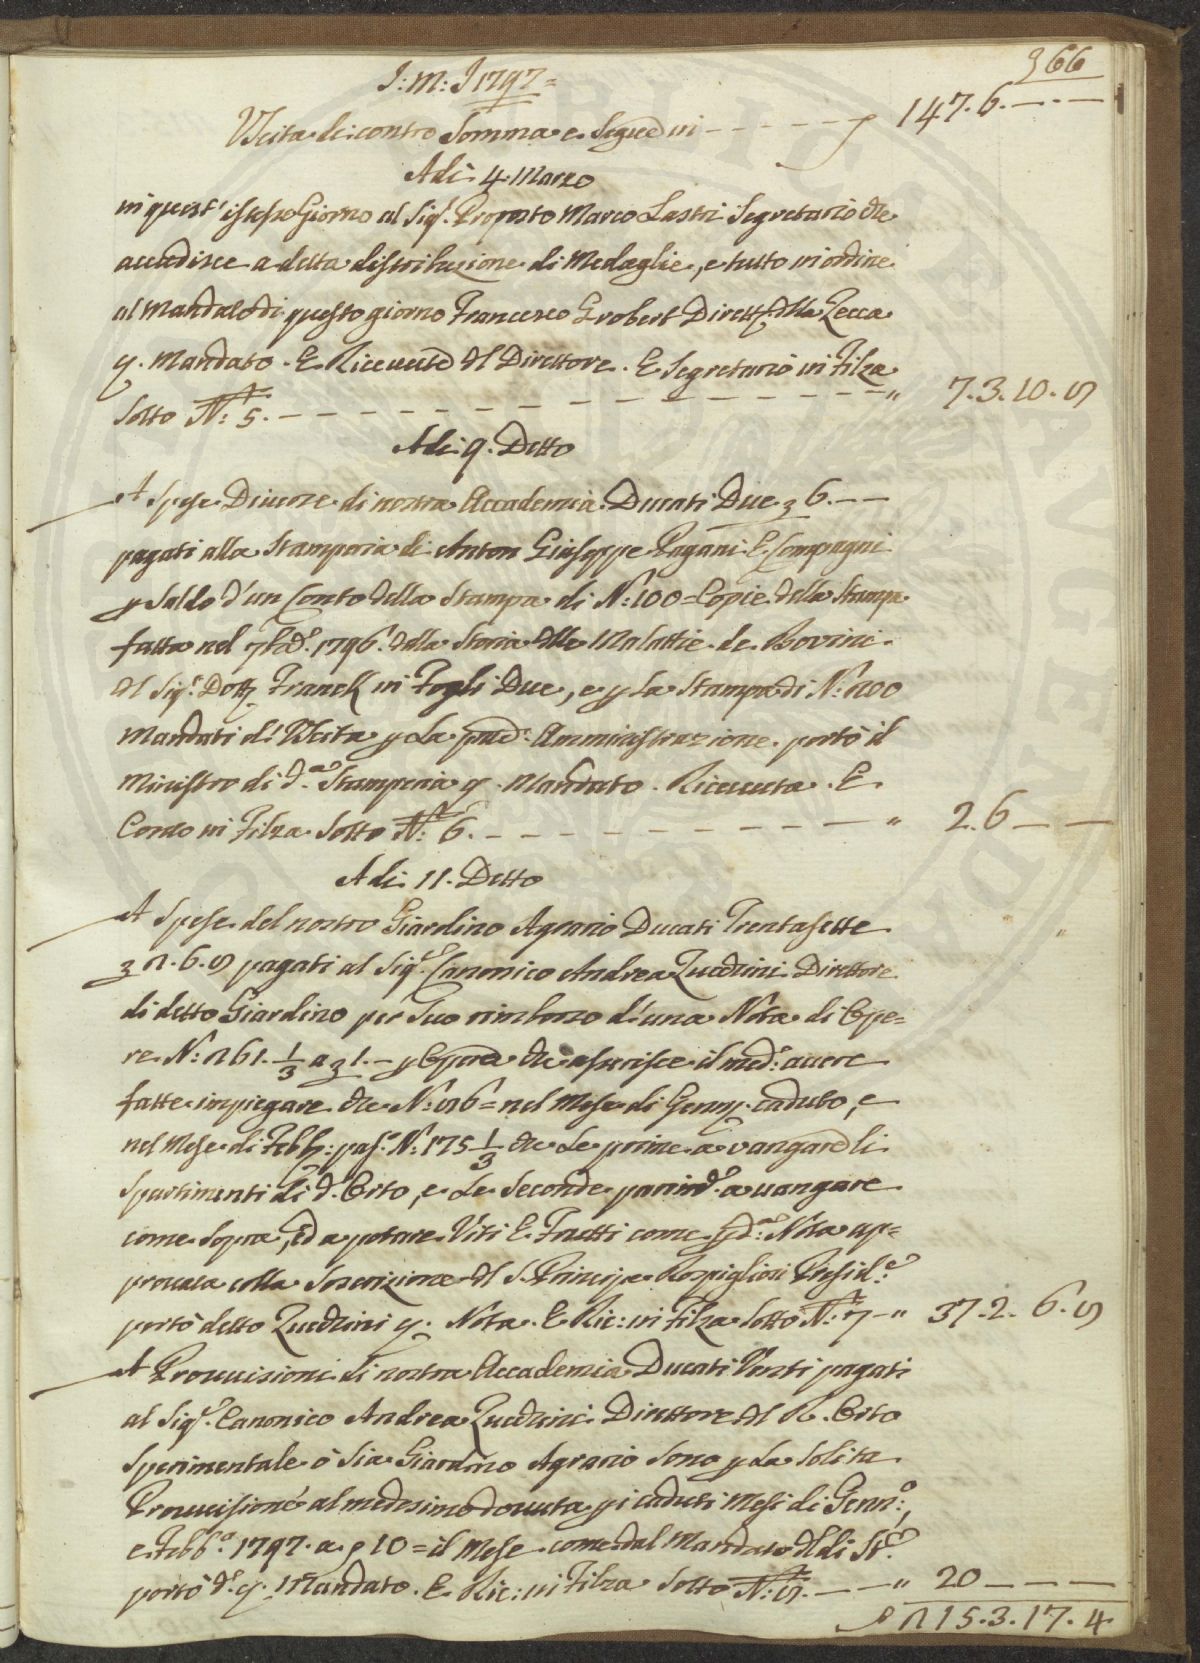 366
J: M: J 1797 =
Uscita di contro Somma e Segue in - - - - - 147. 6. — . —
A di 4. Marzo
in quest' istesso Giorno al Sigr. Proposto Marco Lastri Segretario che
accudisce a detta distribuzione di Medaglie, e tutto in ordine
al Mandato di questo giorno Francesco Grobert Dirett. della Zecca
p. Mandato. E Ricevute del Direttore. E Segretario in Filza
Sotto N: 5. - - - - - - - - - - - - " 7. 3. 10. 8
A di 9. Detto
A Spese Diverse di nostra Accademia Ducati Due 3 6. — —
pagati alla Stamperia di Anton Giuseppe Pagani E Compagni
p Saldo d'un Conto della Stampa di N: 100 = Copie della Stampa
fatta nel 7bre. 1796. della Storia delle Malattie de Bovini
del Sigr. Dott. Franck in Fogli Due, e p La Stampa di N: 200
Mandati di Uscita p La pred. Amministrazione. portò il
Ministro di da. Stamperia p. Mandato. Ricevuta. E
Conto in Filza Sotto N: 6. - - - - - - - - " 2. 6 — —
A di 11. Detto
A Spese del nostro Giardino Agrario Ducati Trentasette
3 2. 6. 8 pagati al Sigr. Canonico Andrea Zucchini Direttore
di detto Giardino per Suo rimborzo d'una Nota di Ope=
re N: 261. 1/3 a 3 1. — p Opera che asserisce il med: avere
fatte impiegare che N: 86 = nel Mese di Genn. caduto, e
nel Mese di Febb: pas. N: 175 1/3 che Le prime a vangare li
Spartimenti di do. Orto, e Le Seconde parimd. a vangare
come Sopra, ed a potare Viti E Frutti come p da. Nota ap=
provata colla Soscrizione del S. Principe Rospigliosi Presid.e
portò detto Zucchini p. Nota. E Ric: in Filza Sotto N: 7 - " 37. 2. 6. 8
A Provvisioni di nostra Accademia Ducati Venti pagati
al Sigr. Canonico Andrea Zucchini Direttore del R. Orto
Sperimentale ò Sia Giardino Agrario Sono p La Solita
Provvisione al medesimo dovuta p i caduti Mesi di Genn.o,
e Febb.o 1797. a p 10 = il Mese come dal Mandato del di Sto.
portò do. p. Mandato. E Ric: in Filza Sotto N: 8. — — " 20 — — —
215. 3. 17. 4